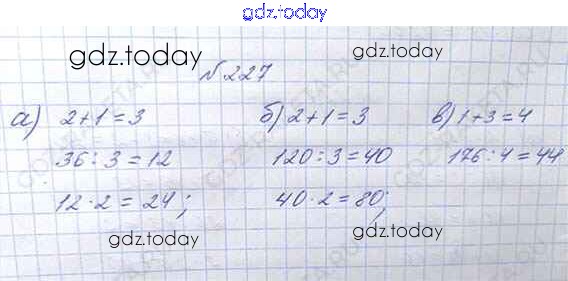 gdz.today
gdz.today
gdz.today
№ 227
а) 2+1=3
36:3=12
12·2=24;
б) 2+1=3
120:3=40
40·2=80;
в) 1+3=4
176:4=44
gdz.today
gdz.today